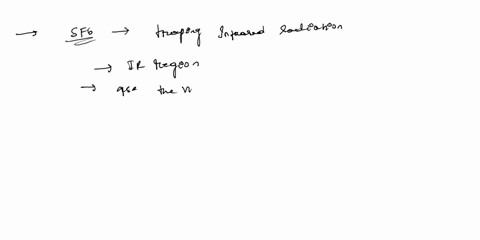 → SF6 → trapping Infrared radiation
→ IR Region
→ the vi